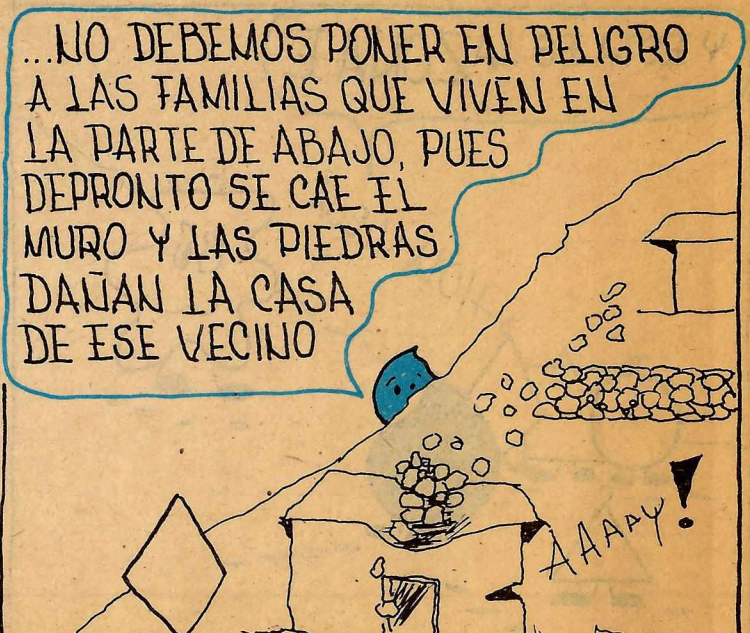 ...NO DEBEMOS PONER EN PELIGRO
A LAS FAMILIAS QUE VIVEN EN
LA PARTE DE ABAJO, PUES
DEPRONTO SE CAE EL
MURO Y LAS PIEDRAS
DAÑAN LA CASA
DE ESE VECINO
AAAAY!